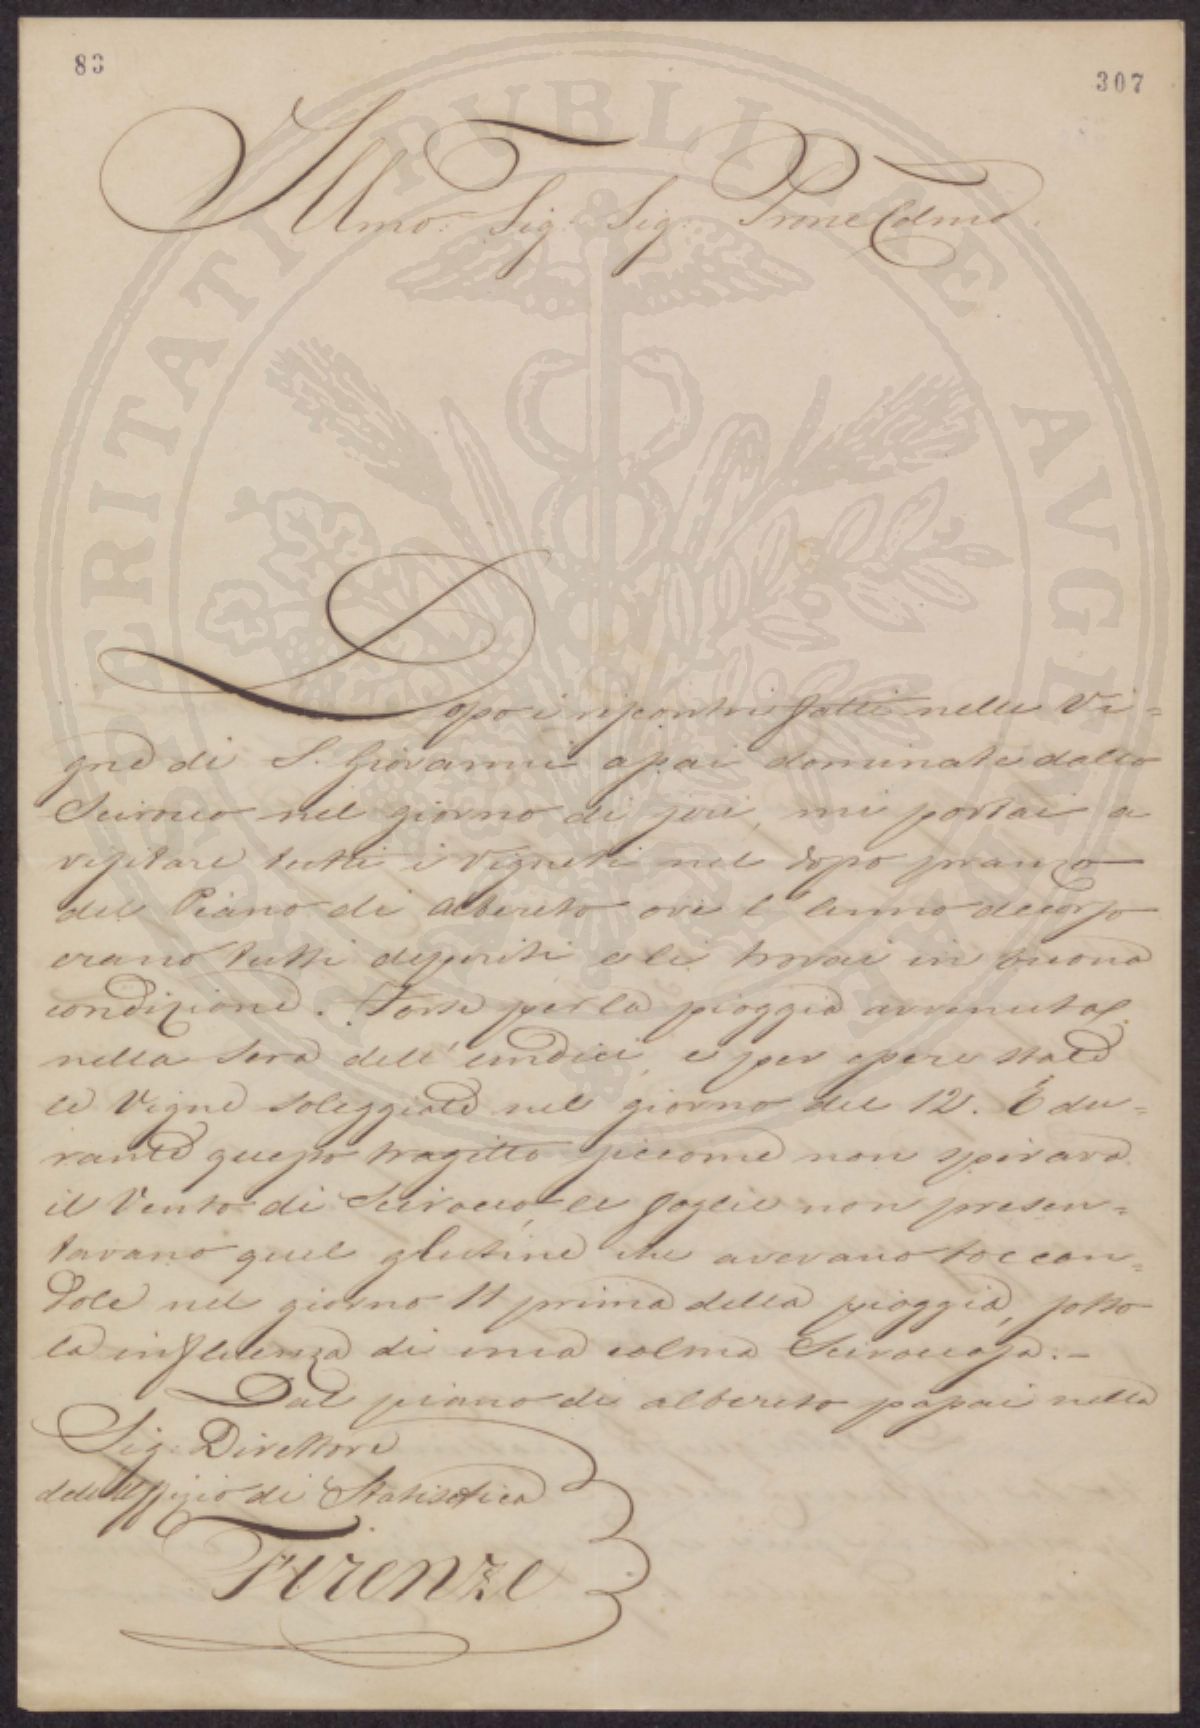 83
307
Illmo. Sig. Sig. Prone Colmo.
Dopo i riscontri fatti nelle Vi=
gne di S. Giovanni assai dominate dallo
Scirocco nel giorno di jeri, mi portai a
visitare tutti i vigneti nel dopo pranzo
del Piano di Albereto ove l'anno decorso
erano tutti deperiti e li trovai in buona
condizione. Forse per la pioggia avvenuta
nella sera dell'undici, e per essere state
le Vigne soleggiate nel giorno del 12. E du=
rante questo tragitto siccome non spirava
il Vento di Scirocco, le foglie non presen=
tavano quel glutine che avevano toccan=
dole nel giorno 11 prima della pioggia, sotto
la influenza di una calma Sciroccosa.-
Dal piano di albereto passai nella
Sig. Direttore
dell'Uffizio di Statistica
Firenze
PROSPERITATI PUBLICAE AVGENDAE